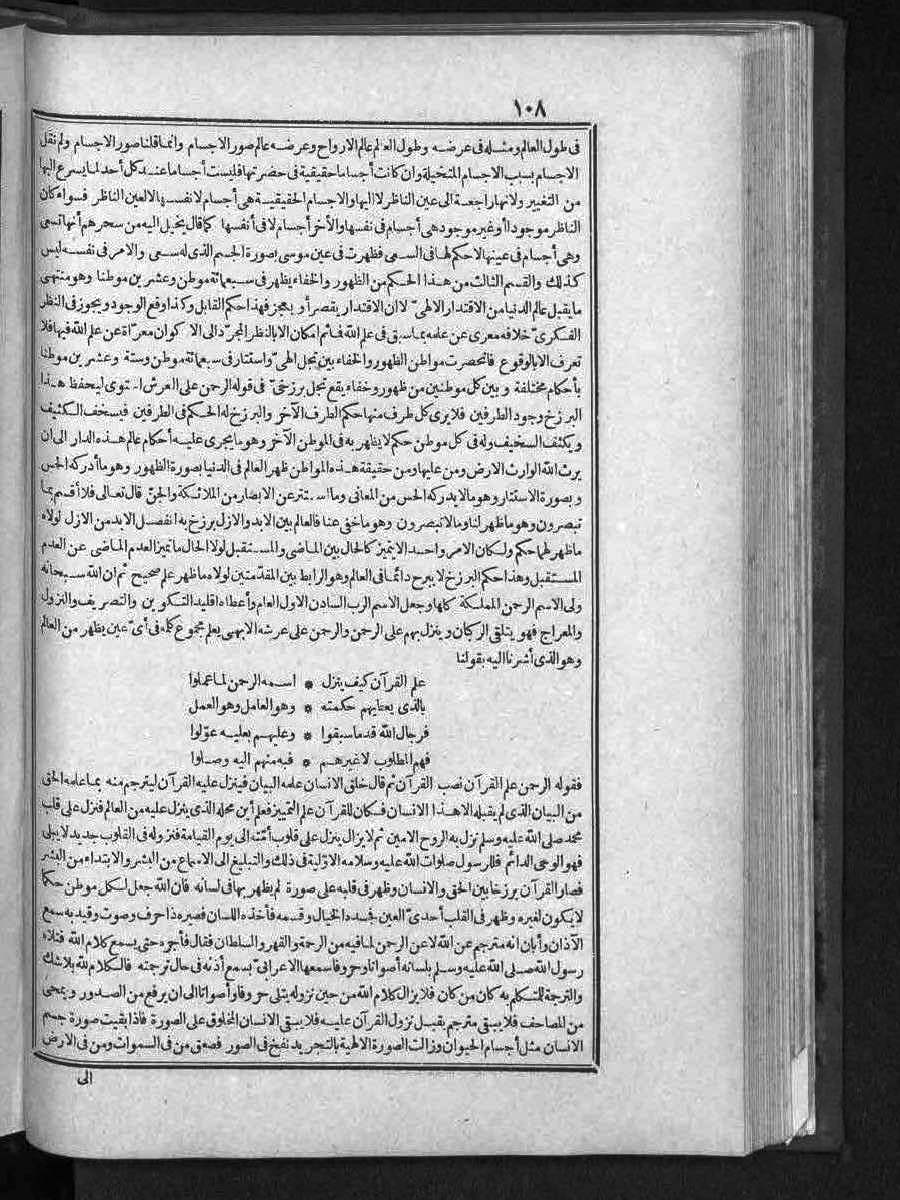 ١٠٨
فى طول العالم ومثله فى عرضه وطول العالم عالم الارواح وعرضه عالم صور الاجسام وانما قلنا صور الاجسام ولم نقل
الاجسام بسبب الاجسام المتخيلة وان كانت أجساما حقيقية فى حضرتها فليست أجساما عند كل أحد لما يسرع اليها
من التغيير ولانها راجعة الى عين الناظر لا اليها والاجسام الحقيقية هى أجسام لانفسها لالعين الناظر فسواء كان
الناظر موجودا أو غير موجود هى أجسام فى نفسها والأخر أجسام لا فى أنفسها كما قال يخيل اليه من سحرهم أنها تسعى
وهى أجسام فى عينها لاحكم لها فى السعى فظهرت فى عين موسى بصورة الجسم الذى له سعى والامر فى نفسه ليس
كذلك والقسم الثالث من هذا الحكم من الظهور والخفاء يظهر فى سبعمائة موطن وعشرين موطنا وهو منتهى
ما يقبل عالم الدنيا من الاقتدار الالهىّ لا ان الاقتدار يقصر أو يعجز فهذا حكم القابل وكذا وقع الوجود ويجوز فى النظر
الفكرىّ خلافه معرى عن علمه بما سبق فى علم الله فما ثم امكان الا بالنظر المجرّد الى الا كوان معرّاة عن علم الله فيها فلا
تعرف الا بالوقوع فانحصرت مواطن الظهور والخفاء بين تجل الهىّ واستتار فى سبعمائة موطن وستة وعشرين موطنا
بأحكام مختلفة وبين كل موطنين من ظهور وخفاء يقع تجل برزخىّ فى قوله الرحمن على العرش استوى ليحفظ هذا
البرزخ وجود الطرفين فلا يرى كل طرف منها حكم الطرف الآخر والبرزخ له الحكم فى الطرفين فيسخف الكثيف
ويكثف السخيف وله فى كل موطن حكم لا يظهر به فى الموطن الآخر وهو ما يجرى عليه أحكام عالم هذه الدار الى ان
يرث الله الوارث الارض ومن عليها ومن حقيقة هذه المواطن ظهر العالم فى الدنيا بصورة الظهور وهو ما أدركه الحس
و بصورة الاستتار وهو مالا يدركه الحس من المعانى وما استتر عن الابصار من الملائكة والجنّ قال تعالى فلا أقسم بما
تبصرون وهو ما ظهر لنا ومالا تبصرون وهو ما خفى عنا فالعالم بين الابد والازل برزخ به انفصل الابد من الازل لولاه
ما ظهر لهما حكم ولكان الامر واحد الايتميز كالحال بين الماضى والمستقبل لولا الحال ما تميز العدم الماضى عن العدم
المستقبل وهذا حكم البرزخ لا يبرح دائما فى العالم وهو الرابط بين المقدّمتين لولاه ما ظهر علم صحيح ثم ان الله سبحانه
ولى الاسم الرحمن المملكة كلها وجعل الاسم الرب السادن الاول العام وأعطاه اقليد التكوين والتصريف والنزول
والمعراج فهو يتلقى الركبان وينزل بهم على الرحمن والرحمن على عرشه الابهى يعلم مجموع كله فى أىّ عين يظهر من العالم
وهو الذى أشرنا اليه بقولنا
علم القرآن كيف ينزل * اسمه الرحمن لما عملوا
بالذى يعطيهم حكمته * وهو العامل وهو العمل
فرجال الله قدما سبقوا * وعليهم بعليه عوّلوا
فهم المطلوب لا غيرهم * فبه منهم اليه وصلوا
فقوله الرحمن علم القرآن نصب القرآن ثم قال خلق الانسان علمه البيان فينزل عليه القرآن ليترجم منه بما علمه الحق
من البيان الذى لم يقبله الا هذا الانسان فكان للقرآن علم التمييز فعلم أين محله الذى ينزل عليه من العالم فنزل على قلب
محمد صلى الله عليه وسلم نزل به الروح الامين ثم لا يزال ينزل على قلوب أمّته الى يوم القيامة فنزوله فى القلوب جديد لا يبلى
فهو الوحى الدائم فللرسول صلوات الله عليه وسلامه الاوّلية فى ذلك والتبليغ الى الاسماع من البشر والابتداء من البشر
فصار القرآن برزخا بين الحق والانسان وظهر فى قلبه على صورة لم يظهر بها فى لسانه فان الله جعل لكل موطن حكما
لا يكون لغيره وظهر فى القلب أحدىّ العين فجسده الخيال وقسمه فأخذه اللسان فصيره ذا حرف وصوت وقيد به سمع
الآذان وأبان انه مترجم عن الله لا عن الرحمن لما فيه من الرحمة والقهر والسلطان فقال فأجره حتى يسمع كلام الله فتلاه
رسول الله صلى الله عليه وسلم بلسانه أصواتا وحروفا سمعها الاعرابىّ بسمع أذنه فى حال ترجمته فالكلام لله بلا شك
والترجمة للمتكلم به كان من كان فلا يزال كلام الله من حين نزوله يتلى حروفا وأصواتا الى ان يرفع من الصدور ويمحى
من المصاحف فلا يبقى مترجم يقبل نزول القرآن عليه فلا يبقى الانسان المخلوق على الصورة فاذا بقيت صورة جسم
الانسان مثل أجسام الحيوان وزالت الصورة الالهية بالتجريد نفخ فى الصور فصعق من فى السموات ومن فى الارض
الى